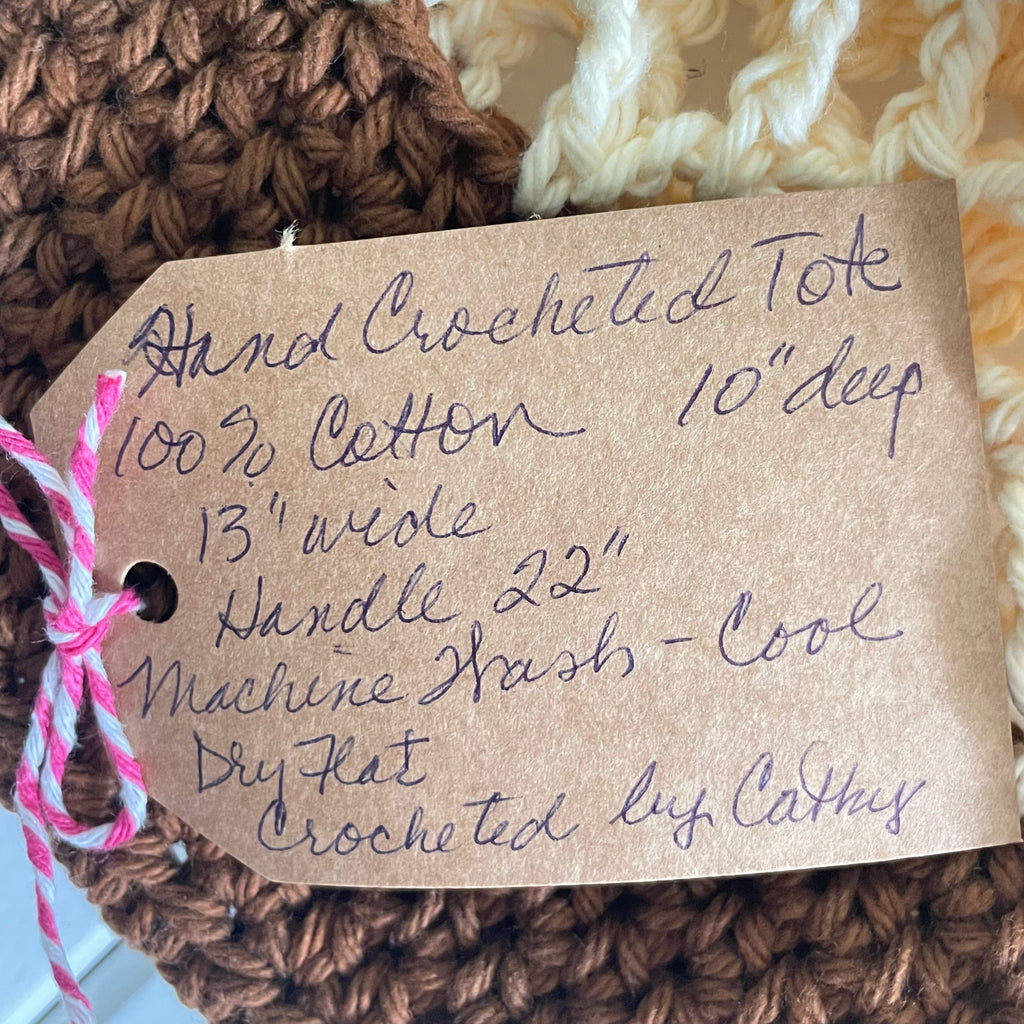 Hand Crocheted Tote
100% Cotton 10" deep
13" wide
Handle 22"
Machine Wash - Cool
Dry Flat
Crocheted by Cathy